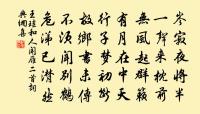 岑寂夜將半
一聲來枕前
無風起群籟
有月在中天
行子夢初斷
故鄉書未傳
不須聞別鶴
危涕已潸然
王珪和人聞雁二首詞
典網集